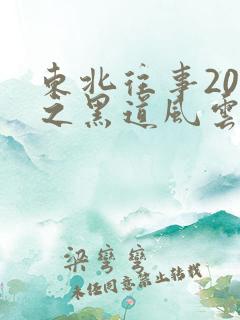 東北往事20
之黑道風雲
梁彎彎
未任同意禁止转载